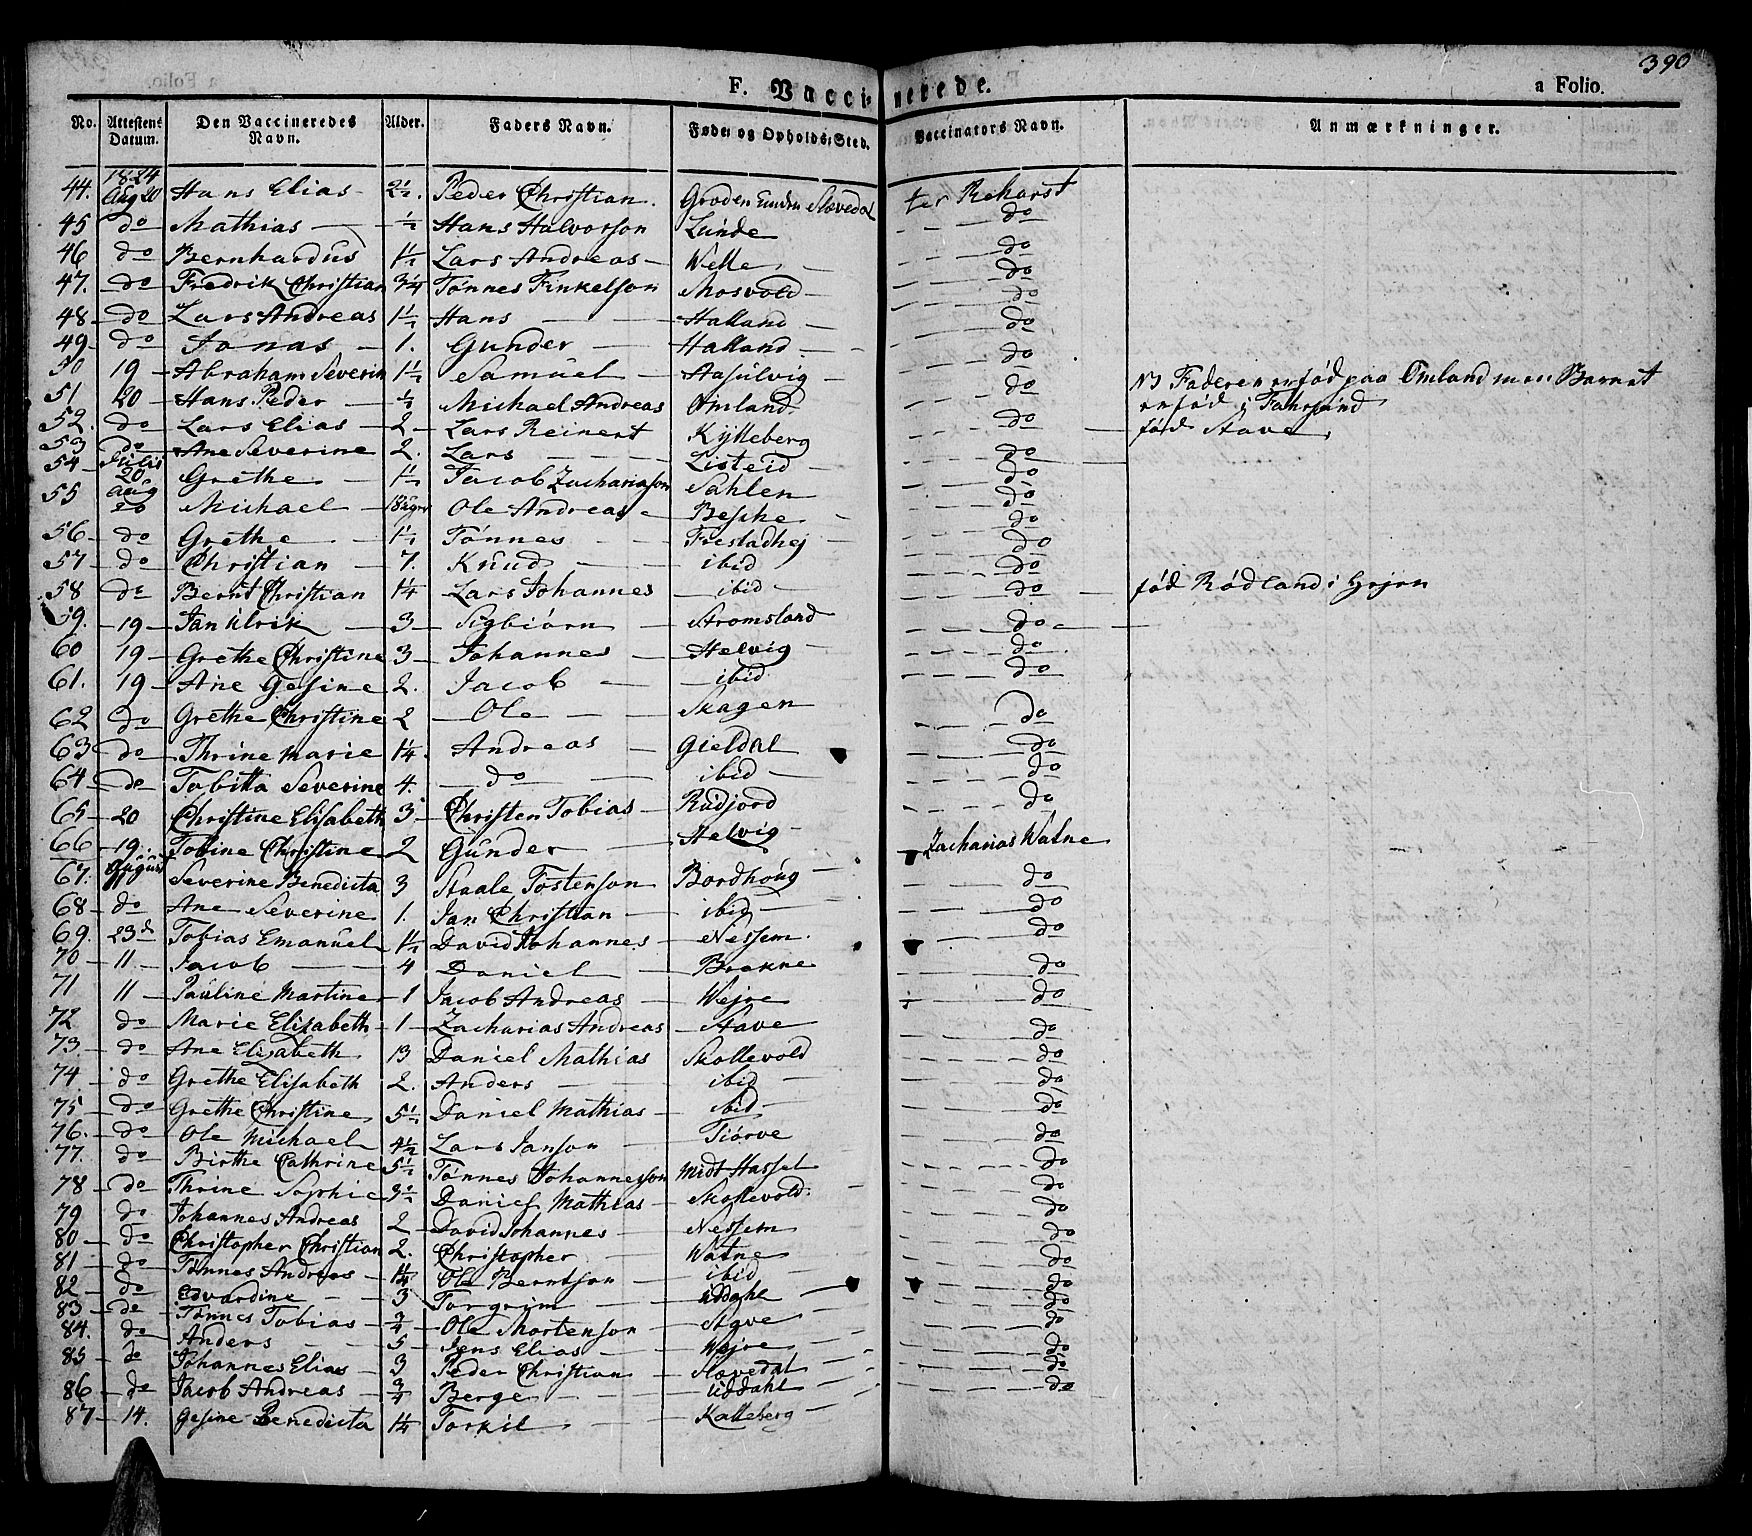 390
F. Vaccinerede. a Folio.
No. Attestens Datum. Den Vaccineredes Navn. Alder. Faders Navn. Føde- og Opholds-Sted. Vaccinators Navn. Anmærkninger.
1824
44. Aug 20 Hans Elias 2½. Peder Christian. Groden Slevedal ter Reharst
45 do Mathias ½ Hans Halvorson Lunde do
46 do Bernhardus 1½ Lars Andreas Welle do
47. do Fredrik Christian 3/4 Tønnes Finkelson Mosvold do
48 do Lars Andreas 1½ Hans Halland do
49 do Jonas 1. Gunder Halland do
50 19 Abraham Severin 1½ Samuel Aasulvig do
51 20 Hans Peder ½ Michael Andreas Omland. do NB Faderen er fød paa Omland men Barnet er fød i Farsund
52. do Lars Elias 2 Lars Reinert Kjlleberg do fød Stave
53 do Ane Severine 2. Lars Listeid do
54 Julii 20 Grethe 1½ Jacob Zachariason Sahlen do
55 Aug 20 Michael 18 uger Ole Andreas Beshe do
56 do Grethe 1½ Tønnes Frestadhej do
57 do Christian 7. Knud ibid do
58 do Bernt Christian 1¼ Lars Johannes ibid do fød Rødland i
59. 19 Jan Ulrik 3 Sigbiørn Stromsland do
60 19 Grethe Christine 3 Johannes Helvig do
61. 19 Ane Gesine 2. Jacob ibid do
62 do Grethe Christine 2 Ole Skagen do
63 do Thrine Marie 1¼. Andreas Gieldal do
64 do Tobitta Severine 4. do ibid do
65 20 Christine Elisabeth 3 Christen Tobias Rudjord do
66 19. Tobine Christine 2 Gunder Helvig Zacharias Watne
67. August Severine Benedicta 3 Staale Tostenson Bordhoug do
68 do Ane Severine 1. Jan Christian ibid do
69. 23d Tobias Emanuel 1½ David Johannes Nessem. do
70 11 Jacob 4 Daniel Brekne do
71 11 Pauline Martine 1 Jacob Andreas Wejre do
72 do Marie Elizabeth 1 Zacharias Andreas Stave do
73. do Ane Elizabeth 13 Daniel Mathias Skollevold do
74 do Grethe Elisabeth 2. Anders ibid do
75 do Grethe Christine 5½ Daniel Mathias ibid do
76. do Ole Michael 4½ Lars Janson Tiørve do
77. do Birthe Cathrine 5½ Tønnes Johanneson Midt Hassel do
78 do Thrine Sophie 3½ Daniel Mathias Skollevold do
79 do Johannes Andreas 2 David Johannes Nessem do
80 do Christopher Christian 2. Christopher Watne do
81 do Tønnes Andreas 1¼ Ole Berntson ibid do
82 do Edvardine 3 Torgrim Uddahl do
83 do Tønnes Tobias 3/4 Ole Mortenson Stave do
84. do Anders 5 Jens Elias Wejre do
85 do Johannes Elias 3 Peder Christian Slevedal do
86 do Jacob Andreas 3/4 Berge Uddahl do
87 14. Gesine Benedicta 1¼ Torkil Kalleberg